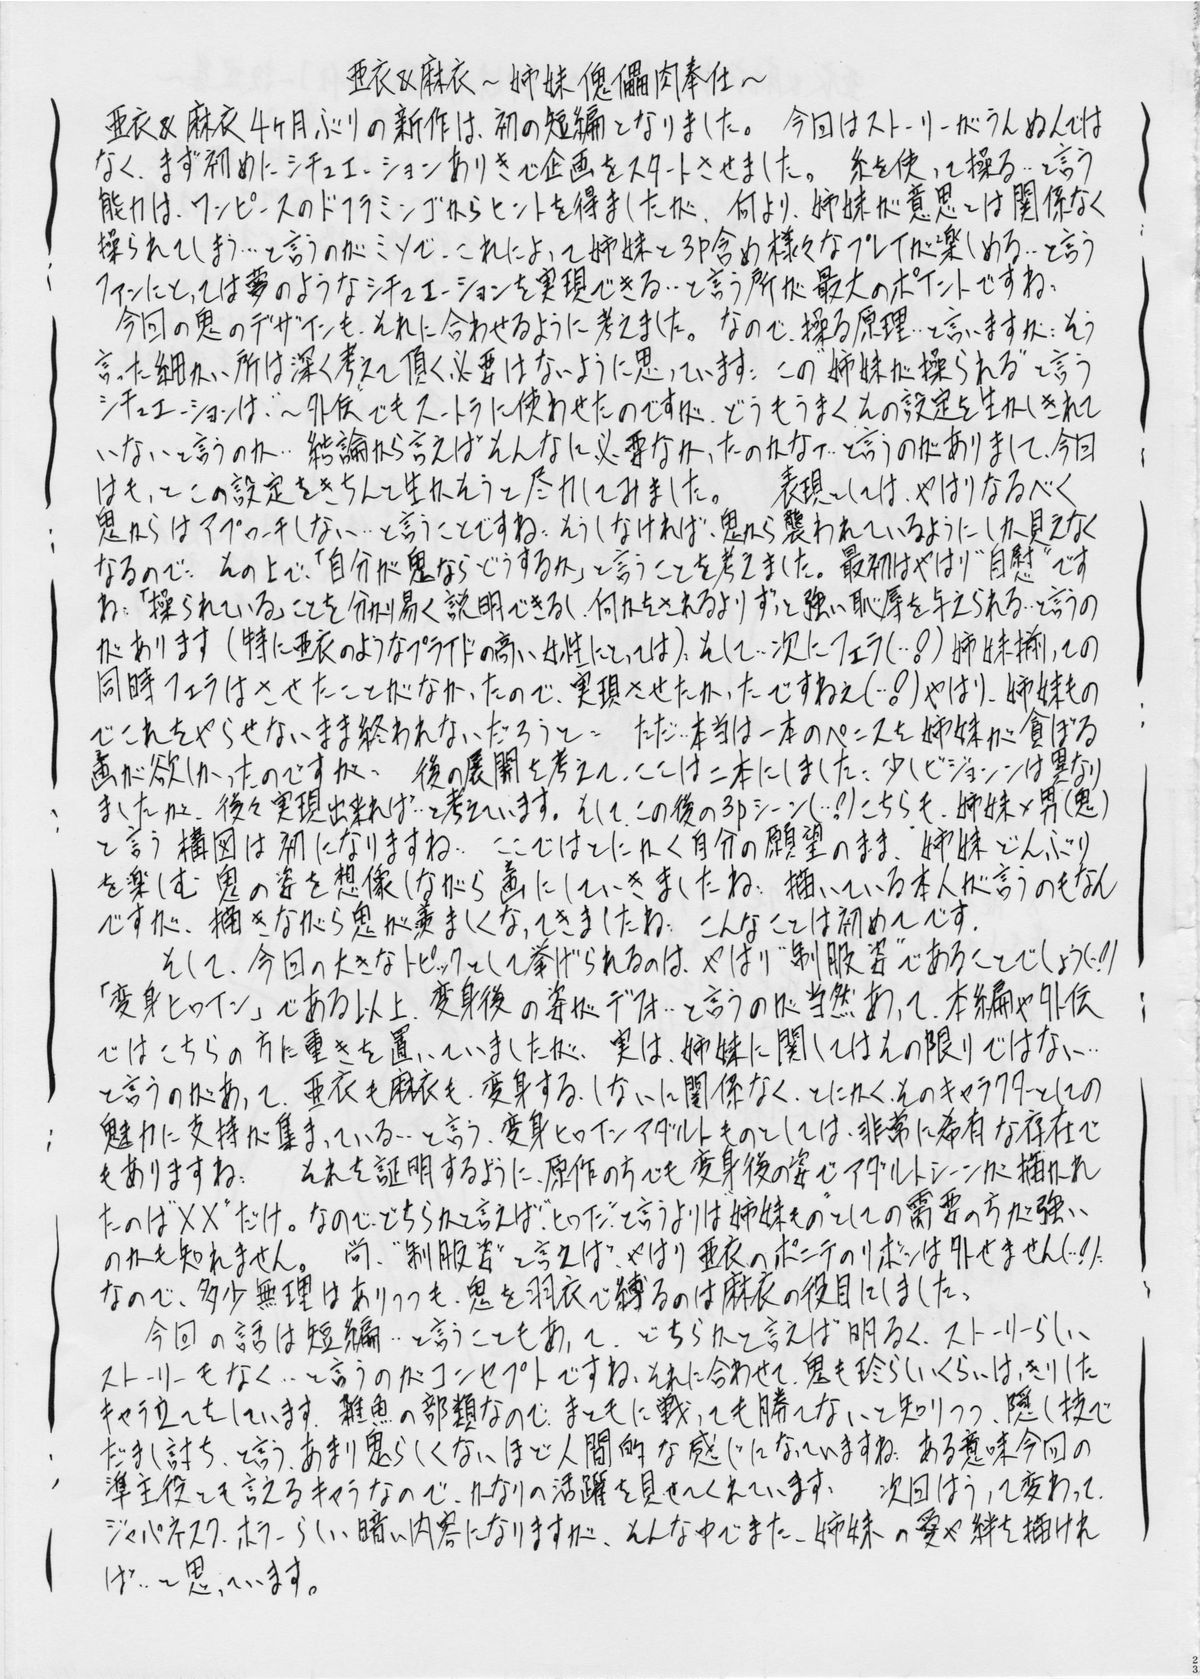 亜衣&麻衣～姉妹傀儡肉奉仕～
亜衣&麻衣4ヶ月ぶりの新作は、初の短編となりました。 今回はストーリーがうんぬんでは
なく、まず初めにシチュエーションありきで企画をスタートさせました。 糸を使って操る…と言う
能力は、ワンピースのドフラミンゴからヒントを得ましたが、何より、姉妹が意思とは関係なく
操られてしまう…と言うのがミソで、これによって姉妹と3P含め様々なプレイが楽しめる…と言う
ファンにとっては夢のようなシチュエーションを実現できる…と言う所が最大のポイントですね、
今回の鬼のデザインも、それに合わせるように考えました。なので、操る原理…と言いますか…そう
言った細かい所は深く考えて頂く必要はないように思っています… この"姉妹が操られる"と言う
シチュエーションは、"～外伝"でもスートラに使わせたのですが、どうもうまくその設定を生かしきれて
いないと言うのか… 結論から言えばそんなに必要なかったのかなァ…と言うのがありまして、今回
はもっとこの設定をきちんと生かそうと尽力してみました。 表現としては、やはりなるべく
鬼からはアプローチしない…と言うことですね… そうしなければ、鬼から襲われているようにしか見えなく
なるので… その上で、「自分が鬼ならどうするか」と言うことを考えました。最初はやはり"自慰"です
ね… 「操られている」ことを分かり易く説明できるし、何かをされるよりずっと強い恥辱を与えられる…と言うの
があります(特に亜衣のようなプライドの高い女性にとっては)、そして…次にフェラ(…!?)姉妹揃っての
同時フェラはさせたことがなかったので、実現させたかったですねぇ(…!?)やはり、姉妹もの
でこれをやらせないまま終われないだろうと… ただ…本当は一本のペニスを姉妹が貪ぼる
画が欲しかったのですが、 後の展開を考えて、ここは二本にしました… 少しビジョンは異なり
ましたが、後々実現出来れば…と考えています。そして、この後の3Pシーン(…!?)こちらも、姉妹×男(鬼)
と言う構図は初になりますね… ここではとにかく自分の願望のまま、"姉妹どんぶり"
を楽しむ鬼の姿を想像しながら画にしていきましたね… 描いている本人が言うのもなん
ですが、描きながら鬼が羨ましくなってきましたね… こんなことは初めてです。
そして、今回の大きなトピックとして挙げられるのは、やはり"制服姿"であることでしょう(…!?)
「変身ヒロイン」である以上、変身後の姿がデフォ…と言うのが当然あって、本編や外伝
ではこちらの方に重きを置いていましたが、実は、姉妹に関してはその限りではない…
と言うのがあって、亜衣も麻衣も、変身する、しないに関係なく、とにかく、そのキャラクターとしての
魅力に支持が集まっている…と言う、変身ヒロインアダルトものとしては、非常に希有な存在で
もありますね… それを証明するように、原作の方でも変身後の姿でアダルトシーンが描かれ
たのは"XX"だけ。なので、どちらかと言えば"ヒロイン"と言うよりは"姉妹もの"としての需要の方が強い
のかも知れません。 尚、"制服姿"と言えば、やはり亜衣のポニテのリボンは外せません(…!?)…
なので、多少無理はありつつも、鬼を羽衣で縛るのは麻衣の役目にしました、
今回の話は短編…と言うこともあって、どちらかと言えば明るく、ストーリーらしい
ストーリーもなく…と言うのがコンセプトですね、それに合わせて、鬼も珍らしいくらいはっきりした
キャラ立てをしています、雑魚の部類なので、まともに戦っても勝てないと知りつつ、隠し技で
だまし討ち、と言う、あまり鬼らしくないほど人間的な感じになっていますね… ある意味今回の
準主役とも言えるキャラなので、かなりの活躍を見せてくれています、 次回はうって変わって、
ジャパネスク、ホラーらしい暗い内容になりますが、そんな中でまた、姉妹の愛や絆を描けれ
ば…と思っています。
23